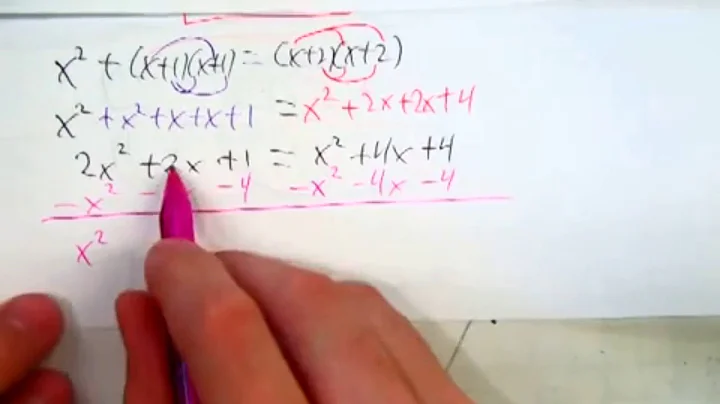 x² + (x+1)(x+1) = (x+2)(x+2)
x² + x² + x + x + 1 = x² + 2x + 2x + 4
2x² + 2x + 1 = x² + 4x + 4
-x² - -4 -x² -4x -4
x²